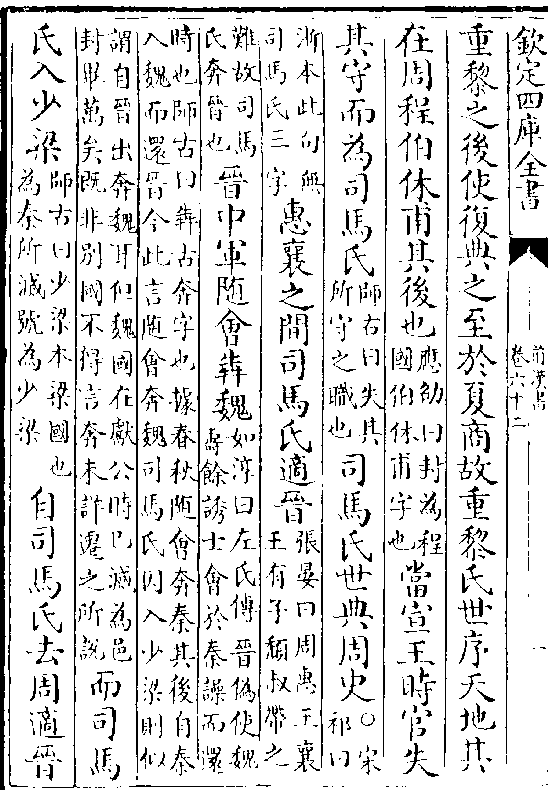 欽定四庫全書
前漢書
卷六十二
重黎之後使復典之至於夏商故重黎氏世序天地其
在周程伯休甫其後也
應劭曰封為程
國伯休甫字也
當宣王時官失
其守而為司馬氏
師古曰失其
所守之職也
司馬氏世典周史
○宋
祁曰
浙本此句無
司馬氏三字
惠襄之間司馬氏適晉
張晏曰周惠王襄
王有子頽叔帶之
難故司馬
氏奔晉也
晉中軍隨會犇魏
如淳曰左氏傳晉偽使魏
壽餘誘士會於秦譟而還
時也師古曰犇古奔字也據春秋隨會奔秦其後自秦
入魏而還晉今此言隨會奔魏司馬氏因入少梁則似
謂自晉出奔魏耳但魏國在獻公時已滅為邑
封畢萬矣既非别國不得言奔未詳遷之所説
而司馬
氏入少梁
師古曰少梁本梁國也
為秦所滅號為少梁
自司馬氏去周適晉